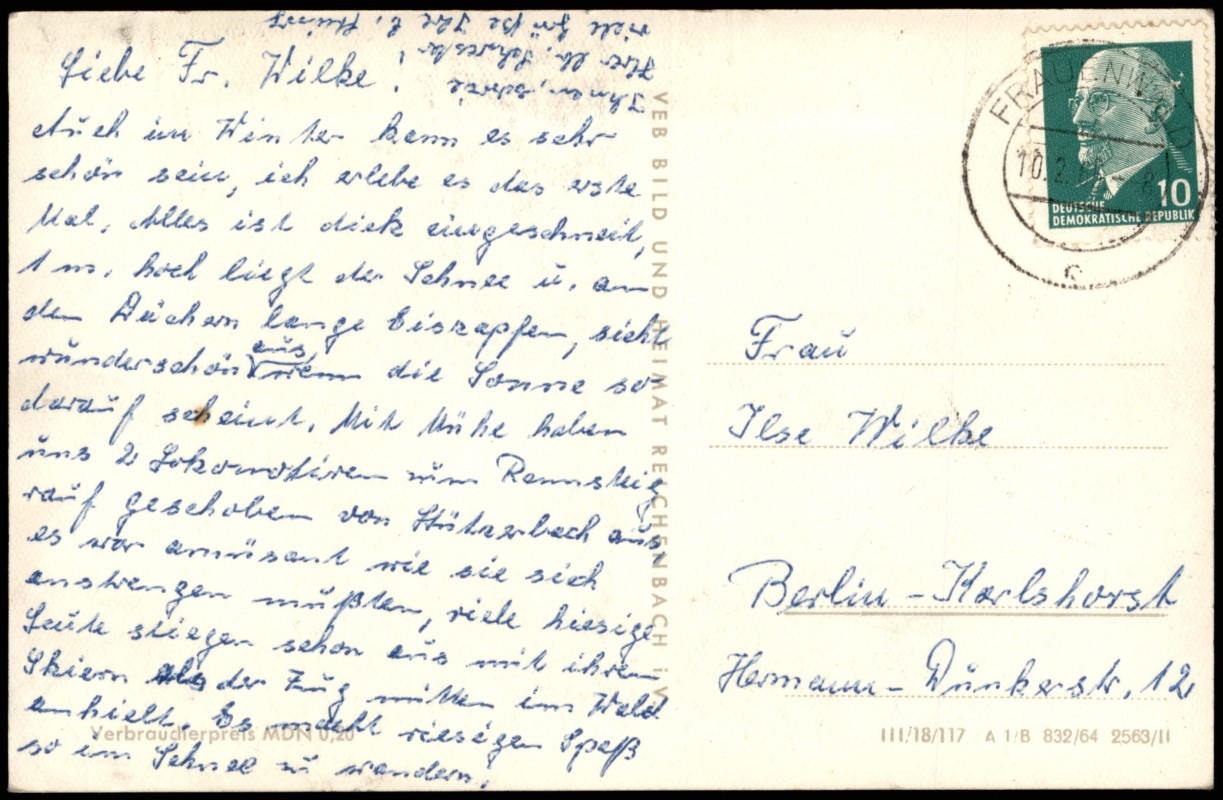 Liebe Fr. Wilke!
Auch im Winter kann es sehr
schön sein, ich erlebe es das erste
Mal, Alles ist dick eingeschneit,
1 m. hoch liegt der Schnee u. an
den Dächern lange Eiszapfen, sieht
wunderschön aus, wenn die Sonne so
darauf scheint. Mit Mühe haben
uns 2 Lokomotiven zum Rennsteig
rauf geschoben von Stützerbach aus,
es war amüsant wie sie sich
anstrengen mußten, viele hiesige
Leute stiegen schon aus mit ihren
Skiern als der Zug mitten im Wald
anhielt. Es macht riesigen Spaß
so im Schnee zu wandern.
Ihnen, sowie
Ihrer lb. Schwester
viele Grüße Ihre E.
VEB BILD UND HEIMAT REICHENBACH i. V.
Verbraucherpreis MDN 0,20
FRAUENWALD
10.2.
10
DEUTSCHE
DEMOKRATISCHE REPUBLIK
Frau
Ilse Wilke
Berlin-Karlshorst
Hermann-Dunkerstr. 12
III/18/117 A 1/B 832/64 2563/II